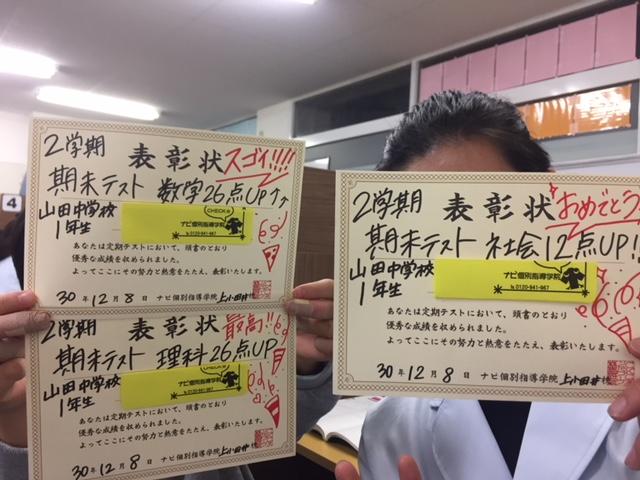 2学期
表彰状 スゴイ!!!!
期末テスト 数学26点UP↑↑
山田中学校
1年生
CHECK it
ナビ個別指導学院
0120-941-967
あなたは定期テストにおいて、頭書のとおり
優秀な成績を収められました。
よってここにその努力と熱意をたたえ、表彰いたします。
30年 12月 8日 ナビ個別指導学院 上小田井校
2学期
表彰状 最高!!
期末テスト 理科26点UP
山田中学校
1年生
ナビ個別指導学院
0120-941-967
あなたは定期テストにおいて、頭書のとおり
優秀な成績を収められました。
よってここにその努力と熱意をたたえ、表彰いたします。
30年 12月 8日 ナビ個別指導学院 上小田井校
2学期
表彰状 おめでとう
期末テスト 社会12点UP!!
山田中学校
1年生
ナビ個別指導学院
0120-941-967
あなたは定期テストにおいて、頭書のとおり
優秀な成績を収められました。
よってここにその努力と熱意をたたえ、表彰いたします。
30年 12月 8日 ナビ個別指導学院 上小田井校
4